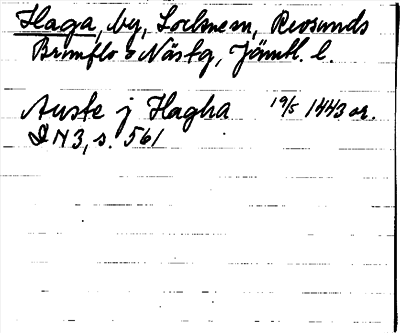 Haga, by, Lockne sn, Revsunds
Brunflo o Näs tg, Jämtl. l.
Auste j Hagha 19/5 1443 or.
DN 3, s. 561